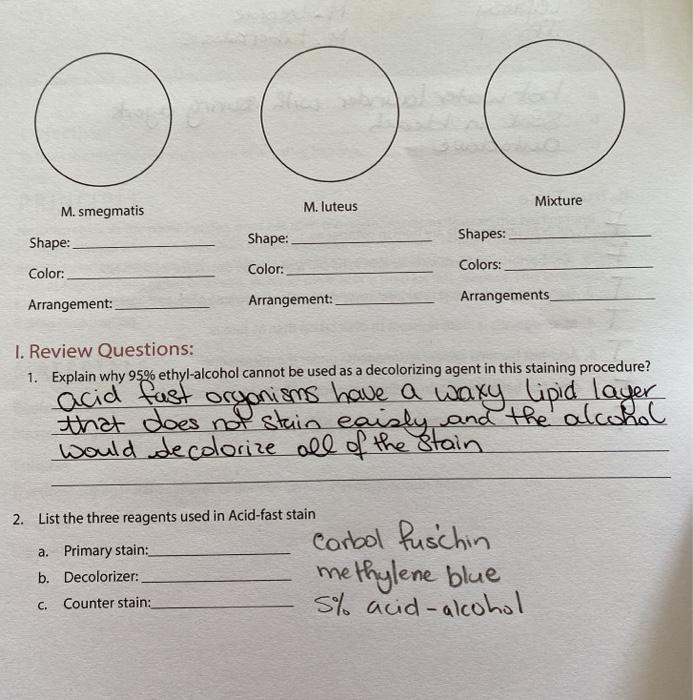 M. smegmatis
M. luteus
Mixture
Shape:
Shape:
Shapes:
Color:
Color:
Colors:
Arrangement:
Arrangement:
Arrangements
I. Review Questions:
1. Explain why 95% ethyl-alcohol cannot be used as a decolorizing agent in this staining procedure?
acid fast organisms have a waxy lipid layer
that does not stain eaisly and the alcohol
would decolorize all of the stain
2. List the three reagents used in Acid-fast stain
a. Primary stain: Carbol fuschin
b. Decolorizer: methylene blue
c. Counter stain: 5% acid-alcohol